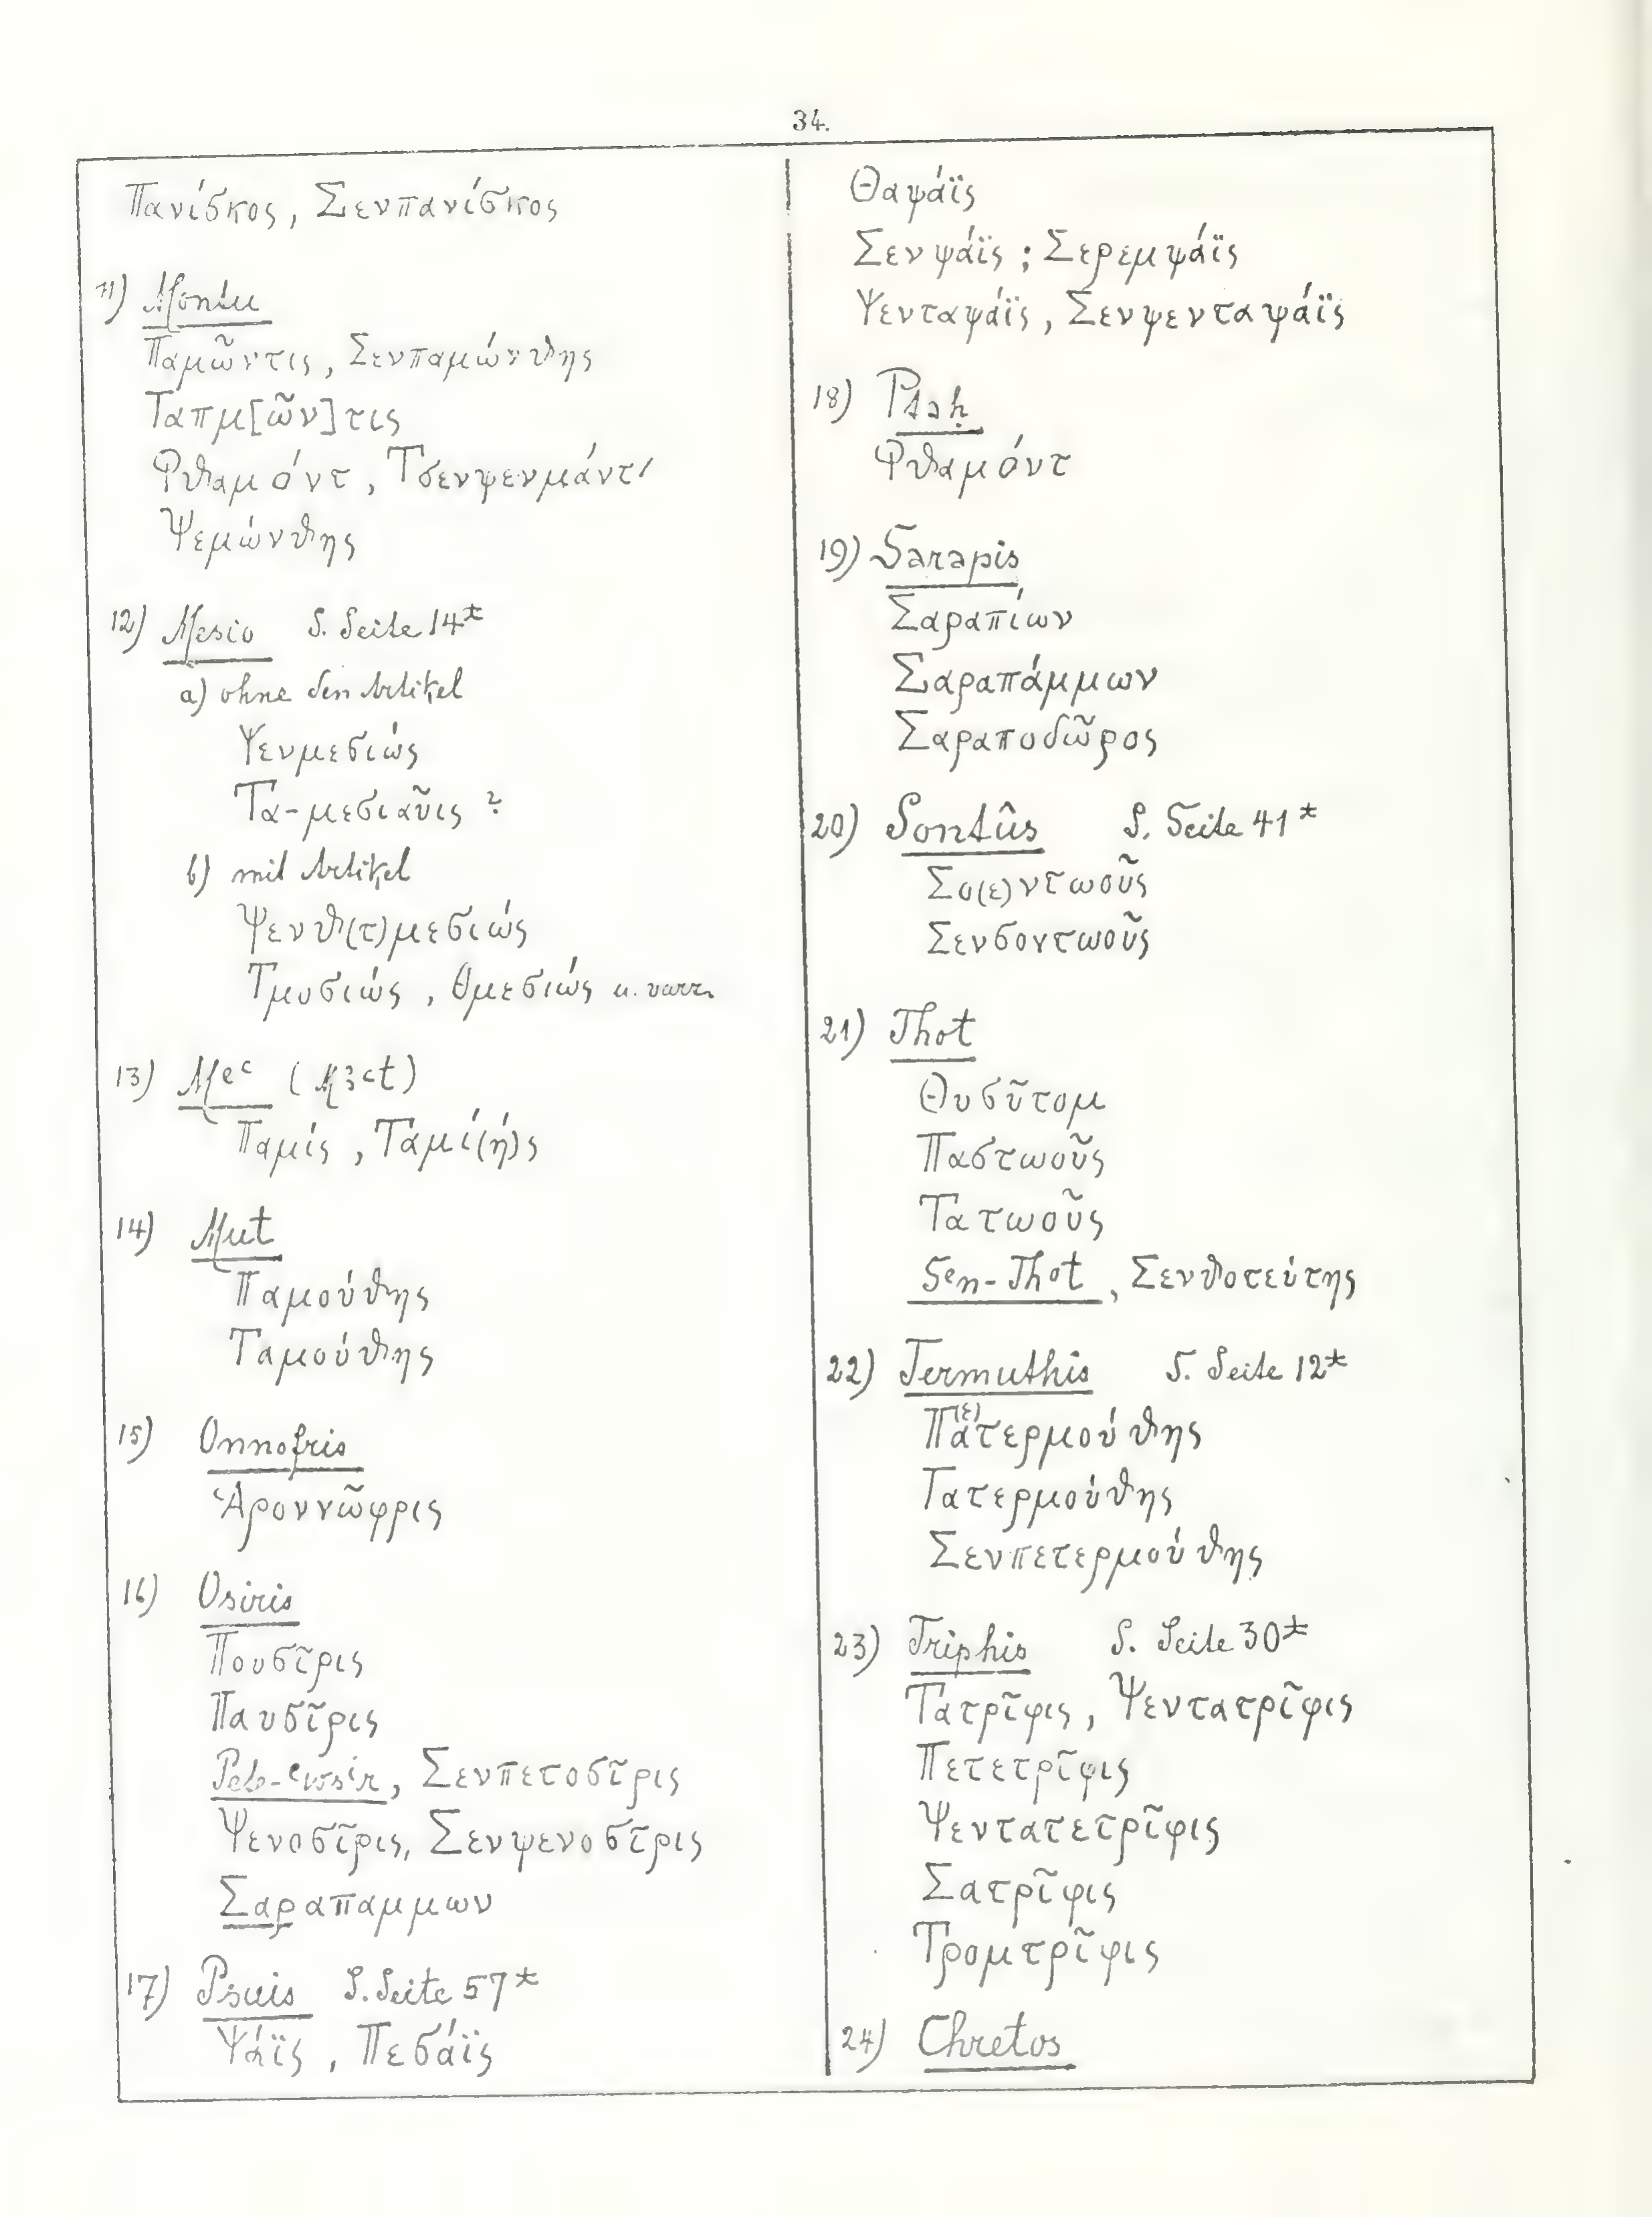 34.
Πανίσκος, Σενπανίσκος
11) Montu
Παμῶντις, Σενπαμώνθης
Ταπμ[ῶν]τις
Φθαμόντ, Τσενψενμάντ/
Ψεμώνθης
12) Mesio S. Seite 14*
a) ohne den Artikel
Ψενμεσιώς
Τα-μεσιαῦις ?
b) mit Artikel
Ψενθ(τ)μεσιώς
Τμυσιώς, Θμεσιώς u. varr.
13) Meᶜ (M3ᶜt)
Παμίς, Ταμί(ή)ς
14) Mut
Παμούθης
Ταμούθης
15) Onnofris
Ἁροννῶφρις
16) Osiris
Πουσῖρις
Παυσῖρις
Σενπετοσῖρις
Ψενοσῖρις, Σενψενοσῖρις
Σαραπαμμων
17) Psais S. Seite 57*
Ψάϊς, Πεσάϊς
Θαψάϊς
Σενψάϊς; Σερεμψάϊς
Ψενταψάϊς, Σενψενταψάϊς
18) Ptaḥ
Φθαμόντ
19) Sarapis
Σαραπίων
Σαραπάμμων
Σαραποδῶρος
20) Sontûs S. Seite 41*
Σο(ε)ντωοῦς
Σενσοντωοῦς
21) Thot
Θυσῦτομ
Παστωοῦς
Τατωοῦς
Sen-Thot, Σενθοτεύτης
22) Termuthis S. Seite 12*
Πα(ε)τερμούθης
Τατερμούθης
Σενπετερμούθης
23) Triphis S. Seite 30*
Τατρῖφις, Ψεντατρῖφις
Πετετρῖφις
Ψεντατετρῖφις
Σατρῖφις
Τρομτρῖφις
24) Chretos